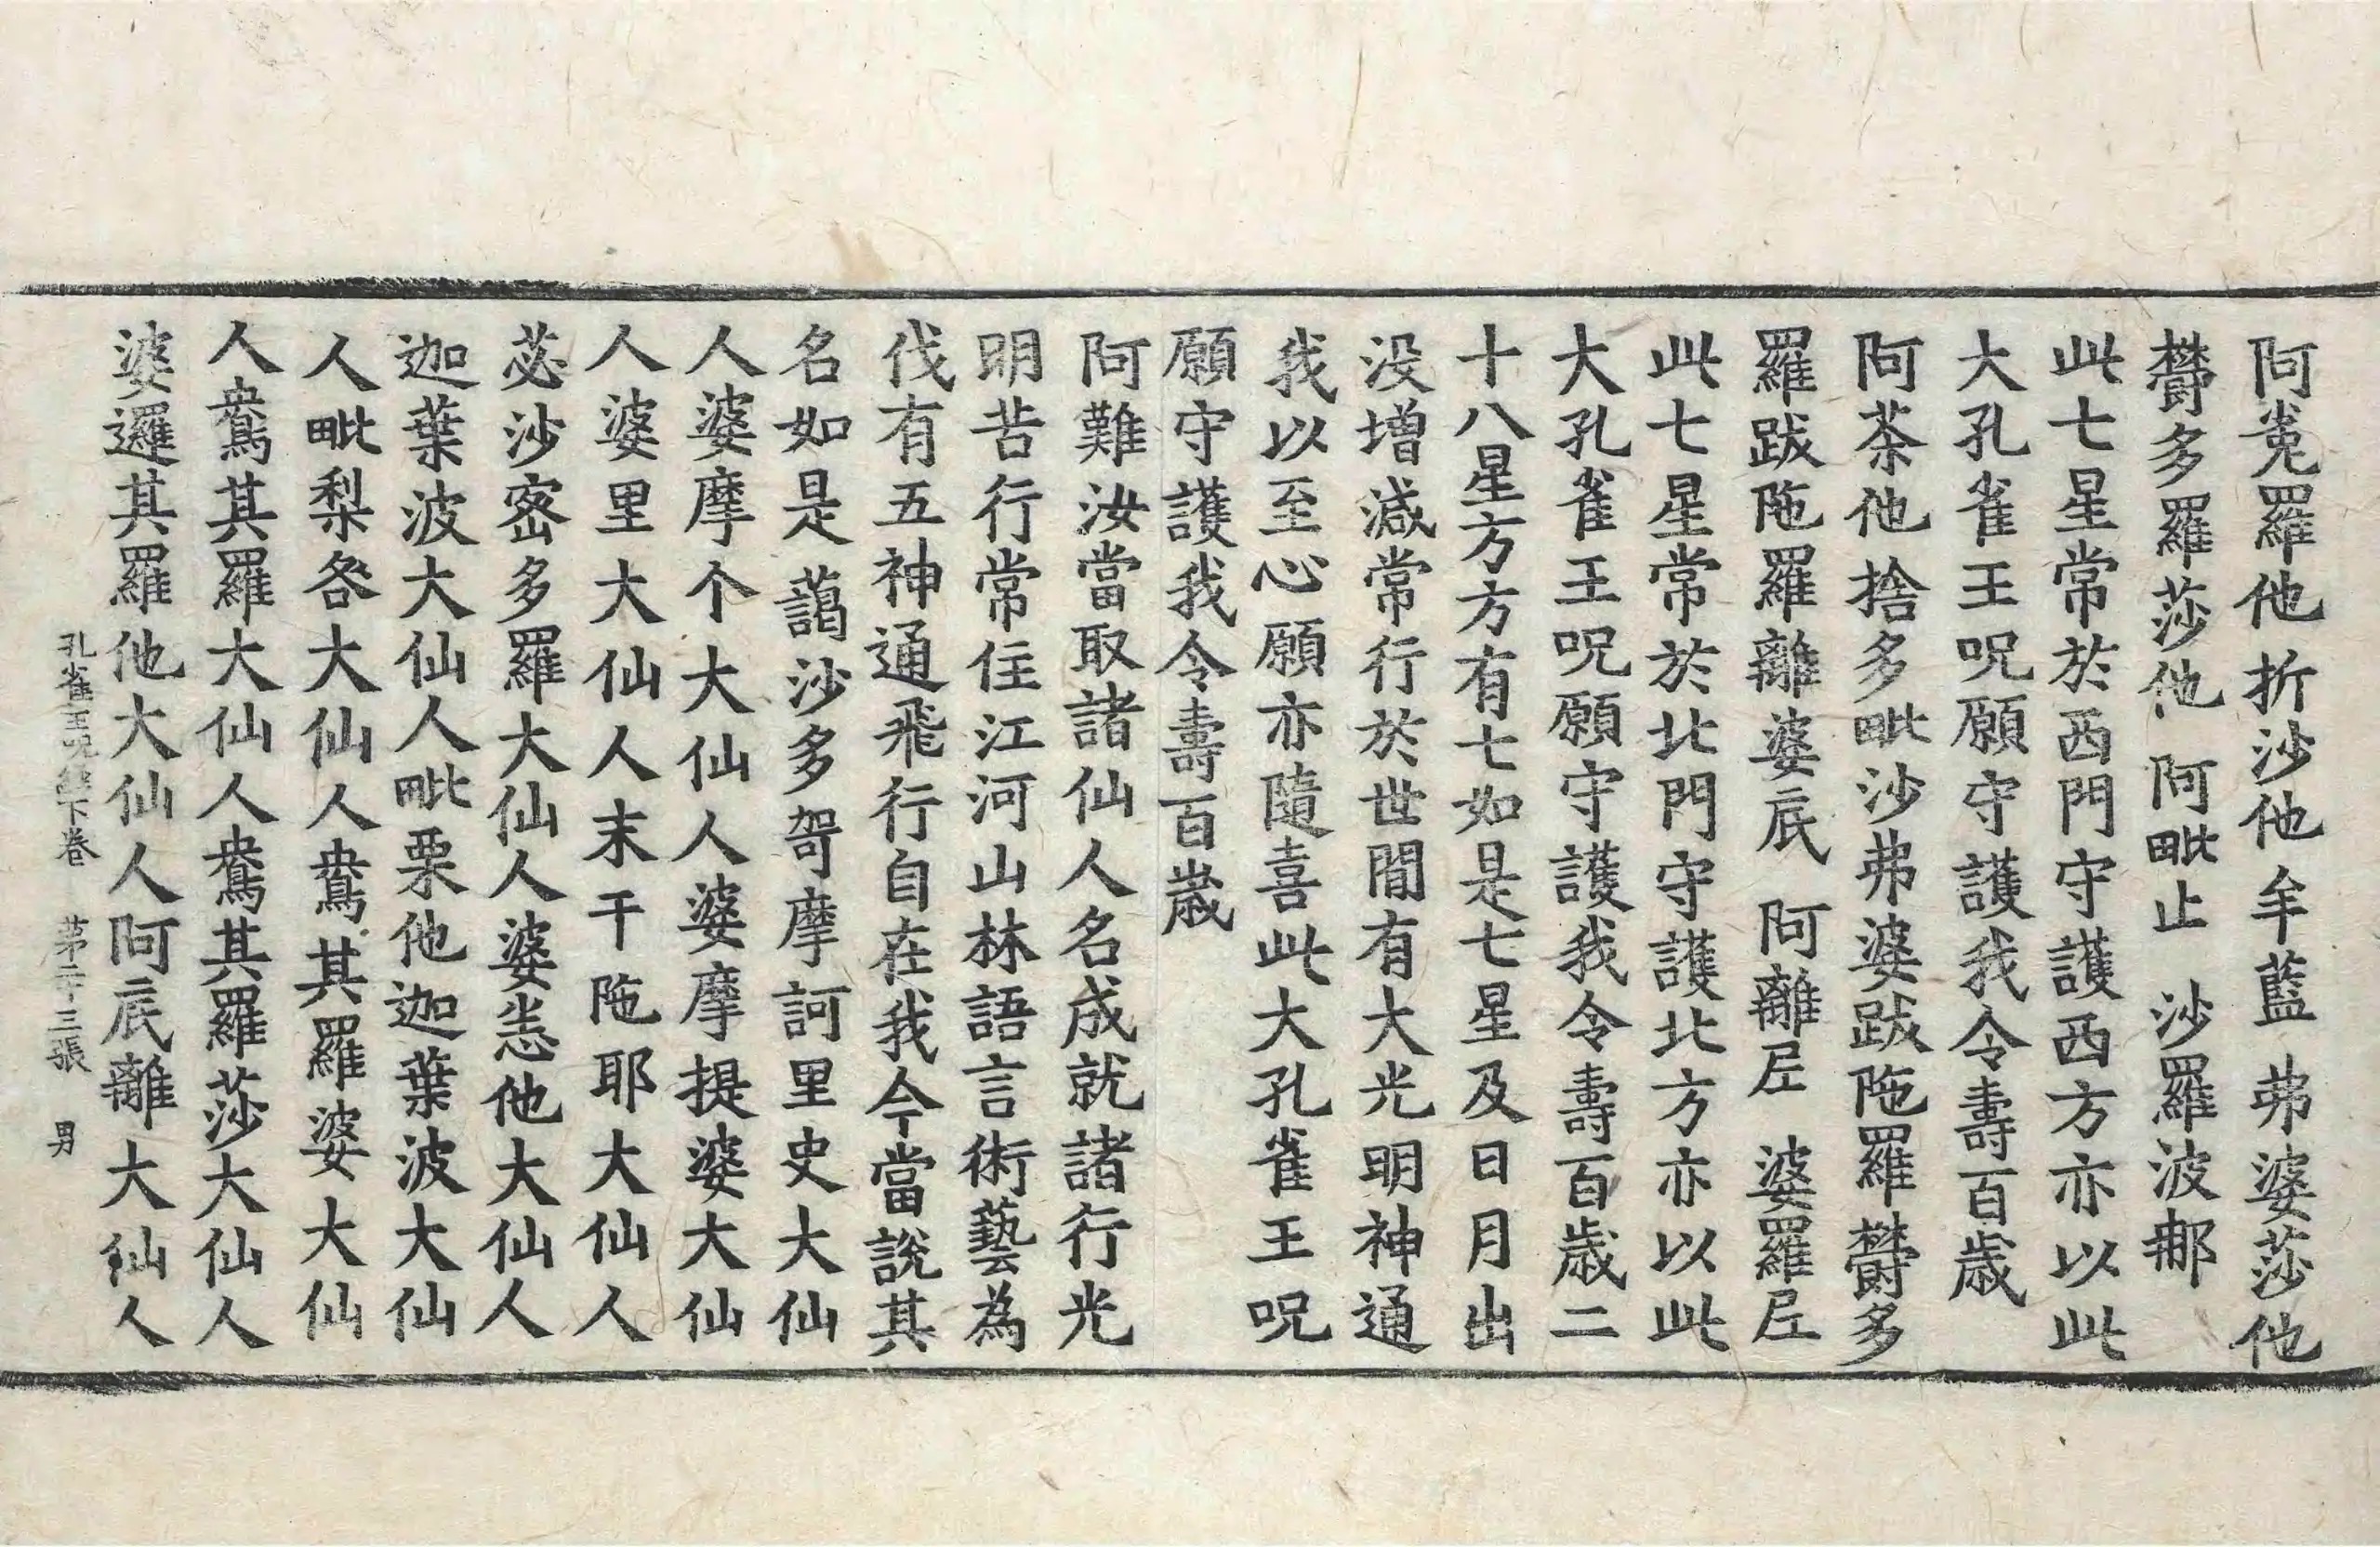 阿㝹羅他 折沙他 牟藍 弗婆莎他
欝多羅莎他 阿毗止 沙羅波𨚗
此七星常於西門守護西方亦以此
大孔雀王呪願守護我令壽百歲
阿荼他 捨多毗沙弗婆跋陁羅欝多
羅跋陁羅離婆底 阿離𡰱 婆羅𡰱
此七星常於北門守護北方亦以此
大孔雀王呪願守護我令壽百歲二
十八星方方有七如是七星及日月出
没增減常行於世間有大光明神通
我以至心願亦隨喜此大孔雀王呪
願守護我令壽百歲
阿難汝當取諸仙人名成就諸行光
明苦行常住江河山林語言術藝為
伐有五神通飛行自在我今當說其
名如是 藹沙多哿摩訶里史大仙
人婆摩个大仙人婆摩提婆大仙
人婆里大仙人末干陁耶大仙人
苾沙蜜多羅大仙人婆恙他大仙人
迦葉波大仙人毗栗他迦葉波大仙
人毗梨咎大仙人鴦其羅婆大仙
人鴦其羅大仙人鴦其羅莎大仙人
婆邏其羅他大仙人阿底離大仙人
孔雀王呪經下卷 苐二十三張 男